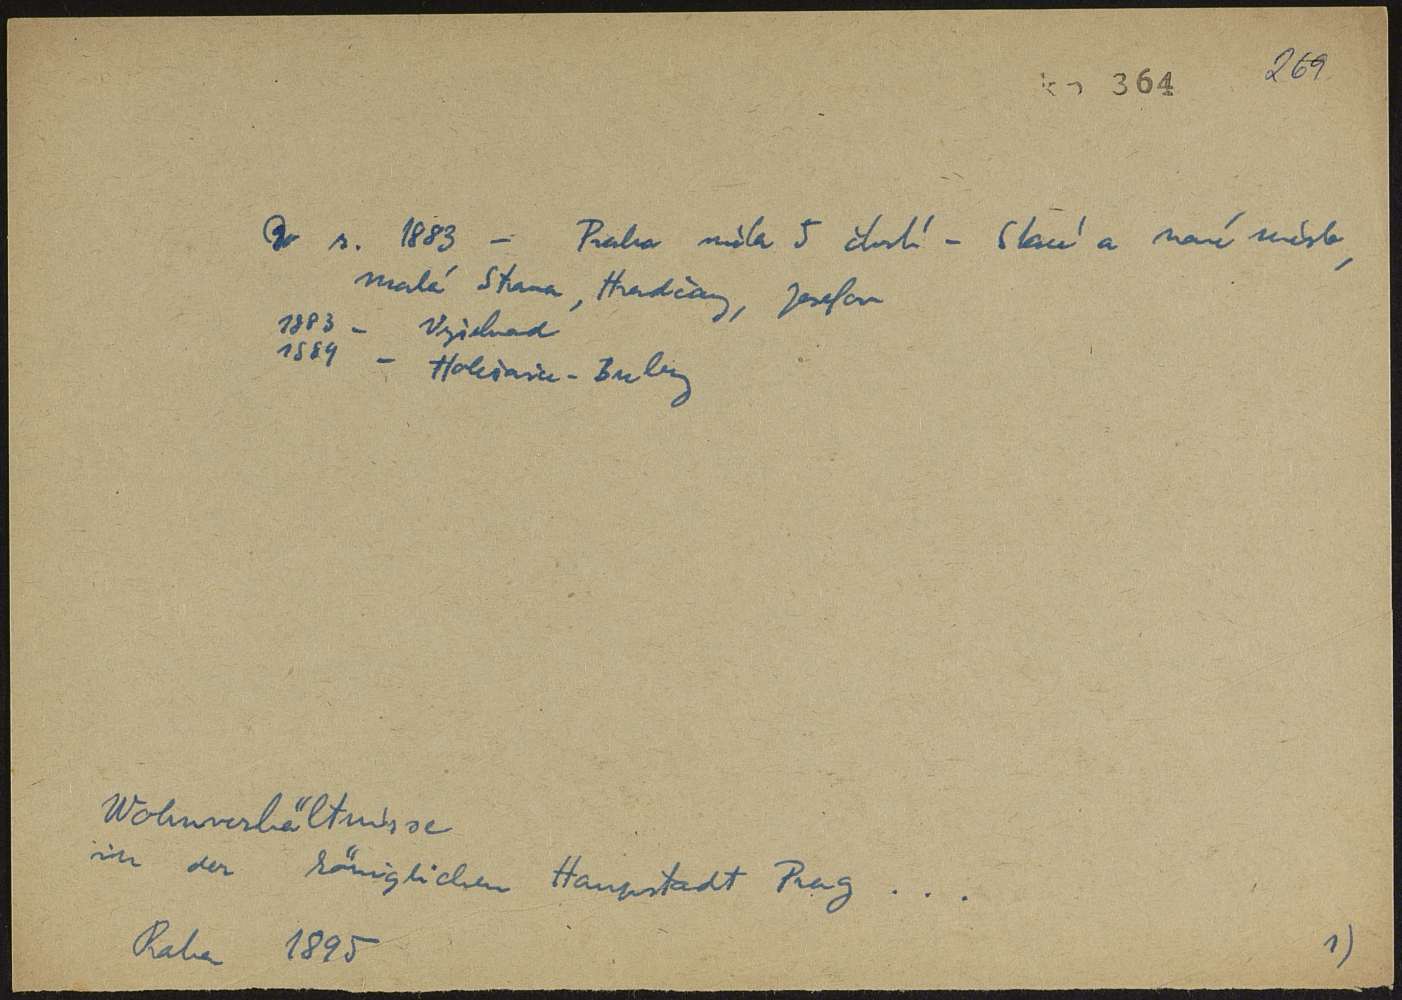 269
kn 364
Do r. 1883 - Praha měla 5 čtvrtí - Staré a nové město,
malá Strana, Hradčany, Josefov
1883 - Vyšehrad
1884 - Holešovice - Bubny
Wohnverhältnisse
in der königlichen Haupstadt Prag . . .
Praha 1895
1)